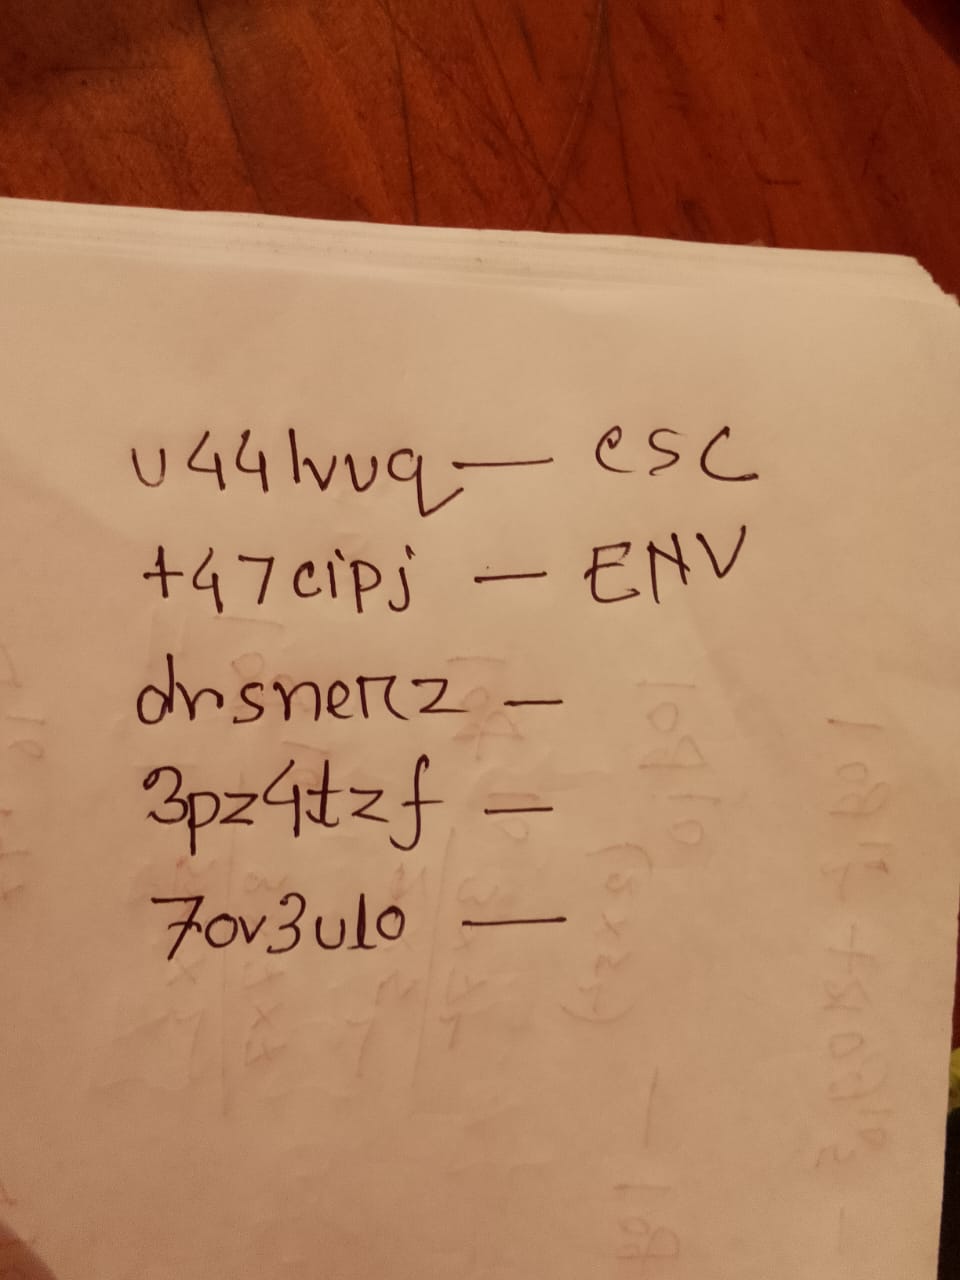 u44lvuq — esc
t47cipj — ENV
drsnerz —
3pz4tzf —
7ov3ulo —